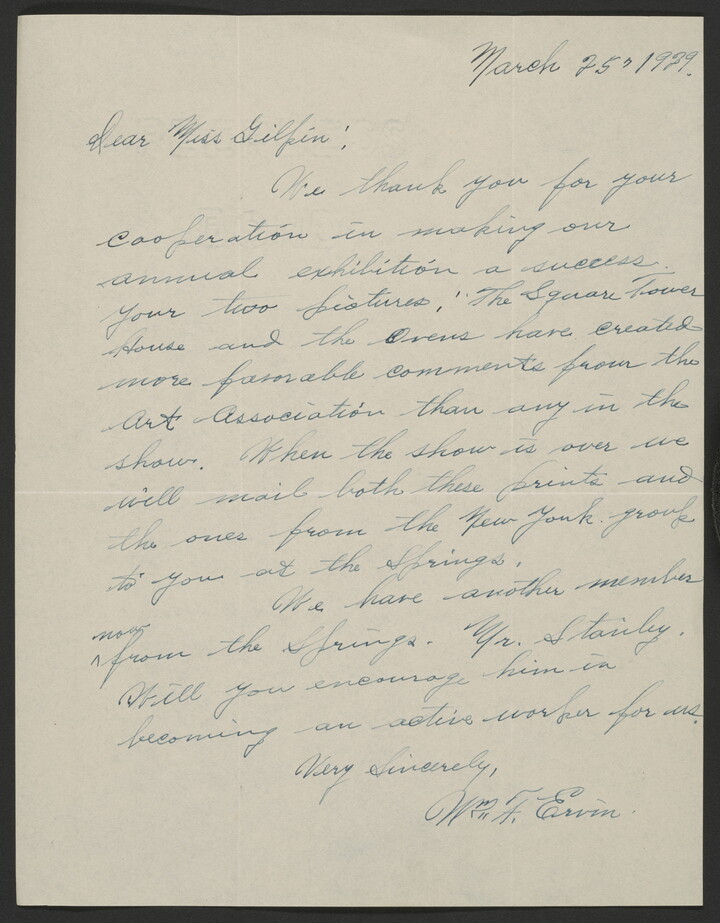 March 25" 1929.
Dear Miss Gilpin!,
We thank you for your
cooperation in making our
annual exhibition a success.
Your two pictures, "The Square Tower
House and the Ovens have created
more favorable comments from the
Art Association than any in the
show. When the show is over we
will mail both these prints and
the ones from the New York group
to you at the Springs.
We have another member
now
^ from the Springs. Mr. Stanley.
Will you encourage him in
becoming an active worker for us.
Very Sincerely,
Wm. F. Ervin.